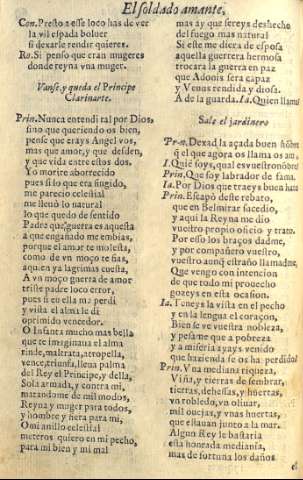 El soldado amante.
Con. Presto a esse loco has de ver
la vil espada boluer
si dexarle rendir quieres.
Ro. Si penso que eran mugeres
donde reyna vna muger.
Vanse, y queda el Principe
Clarinarte.
Prin. Nunca entendi tal por Dios,
sino que queriendo os bien,
pense que erays Angel vos,
mas que amor, y que desden,
y que vida entre estos dos.
Yo morire aborrecido
pues si lo que era fingido,
me parecio celestial
me lleuò lo natural
lo que quedo de sentido
Padre que guerra es aquesta
à que engañado me embias,
porque el amor te molesta,
como de vn moço te fias,
a quien ya lagrimas cuesta,
A vn moço guerra de amor
triste padre loco error,
pues si en ella ma perdi
y vista el alma le di
oprimido vencedor.
O Infanta mucho mas bella
que te imaginaua el alma
rinde, maltrata, atropella,
vence, triunfa, lleua palma
del Rey el Principe, y della,
Sola armada, y contra mi,
matandome de mil modos,
Reyna y muger para todos,
y hombre y fiera para mi,
O mi anillo celestial
meteros quiero en mi pecho,
para mi bien y mi mal
mas ay que sereys deshecho
del fuego mas natural
Si este me diera de esposa
aquella guerrera hermosa
trocara la guerra en paz
que Adonis sera capaz
y Venus rendida y diosa.
A de la guarda. Ia. Quien llama
Sale el jardinero
Prin. Dexad la açada buen hõbre
q̃ el que agora os llama os ama,
I. Quiẽ soys, qual es vuestro nõbre
Prin. Que soy labrador de fama.
Ia. Por Dios que traeys buen habito
Prin. Escapò deste rebato,
que en Belimar sucedio,
y aqui la Reyna me dio
vuestro propio oficio y trato.
Por esso los braços dadme,
y por compañero vuestro,
vuestro amigo estraño llamadme,
Que vengo con intencion
de que todo mi prouecho
gozeys en esta ocasion.
Ia. Teneys la vista en el pecho
y en la lengua el coraçon,
Bien se ve vuestra nobleza,
y pesame que a pobreza
y a miseria ayays venido
que hazienda se os ha perdido?
Prin. Vna mediana riqueza,
Viña, y tierras de sembrar,
tierras, dehessas, y huertas,
vn robledo, vn oliuar,
mil ouejas, y vnas huertas,
que estauan junto a la mar.
Algun Rey le bastaria
esta honrada mediania,
mas de fortuna los daños
el